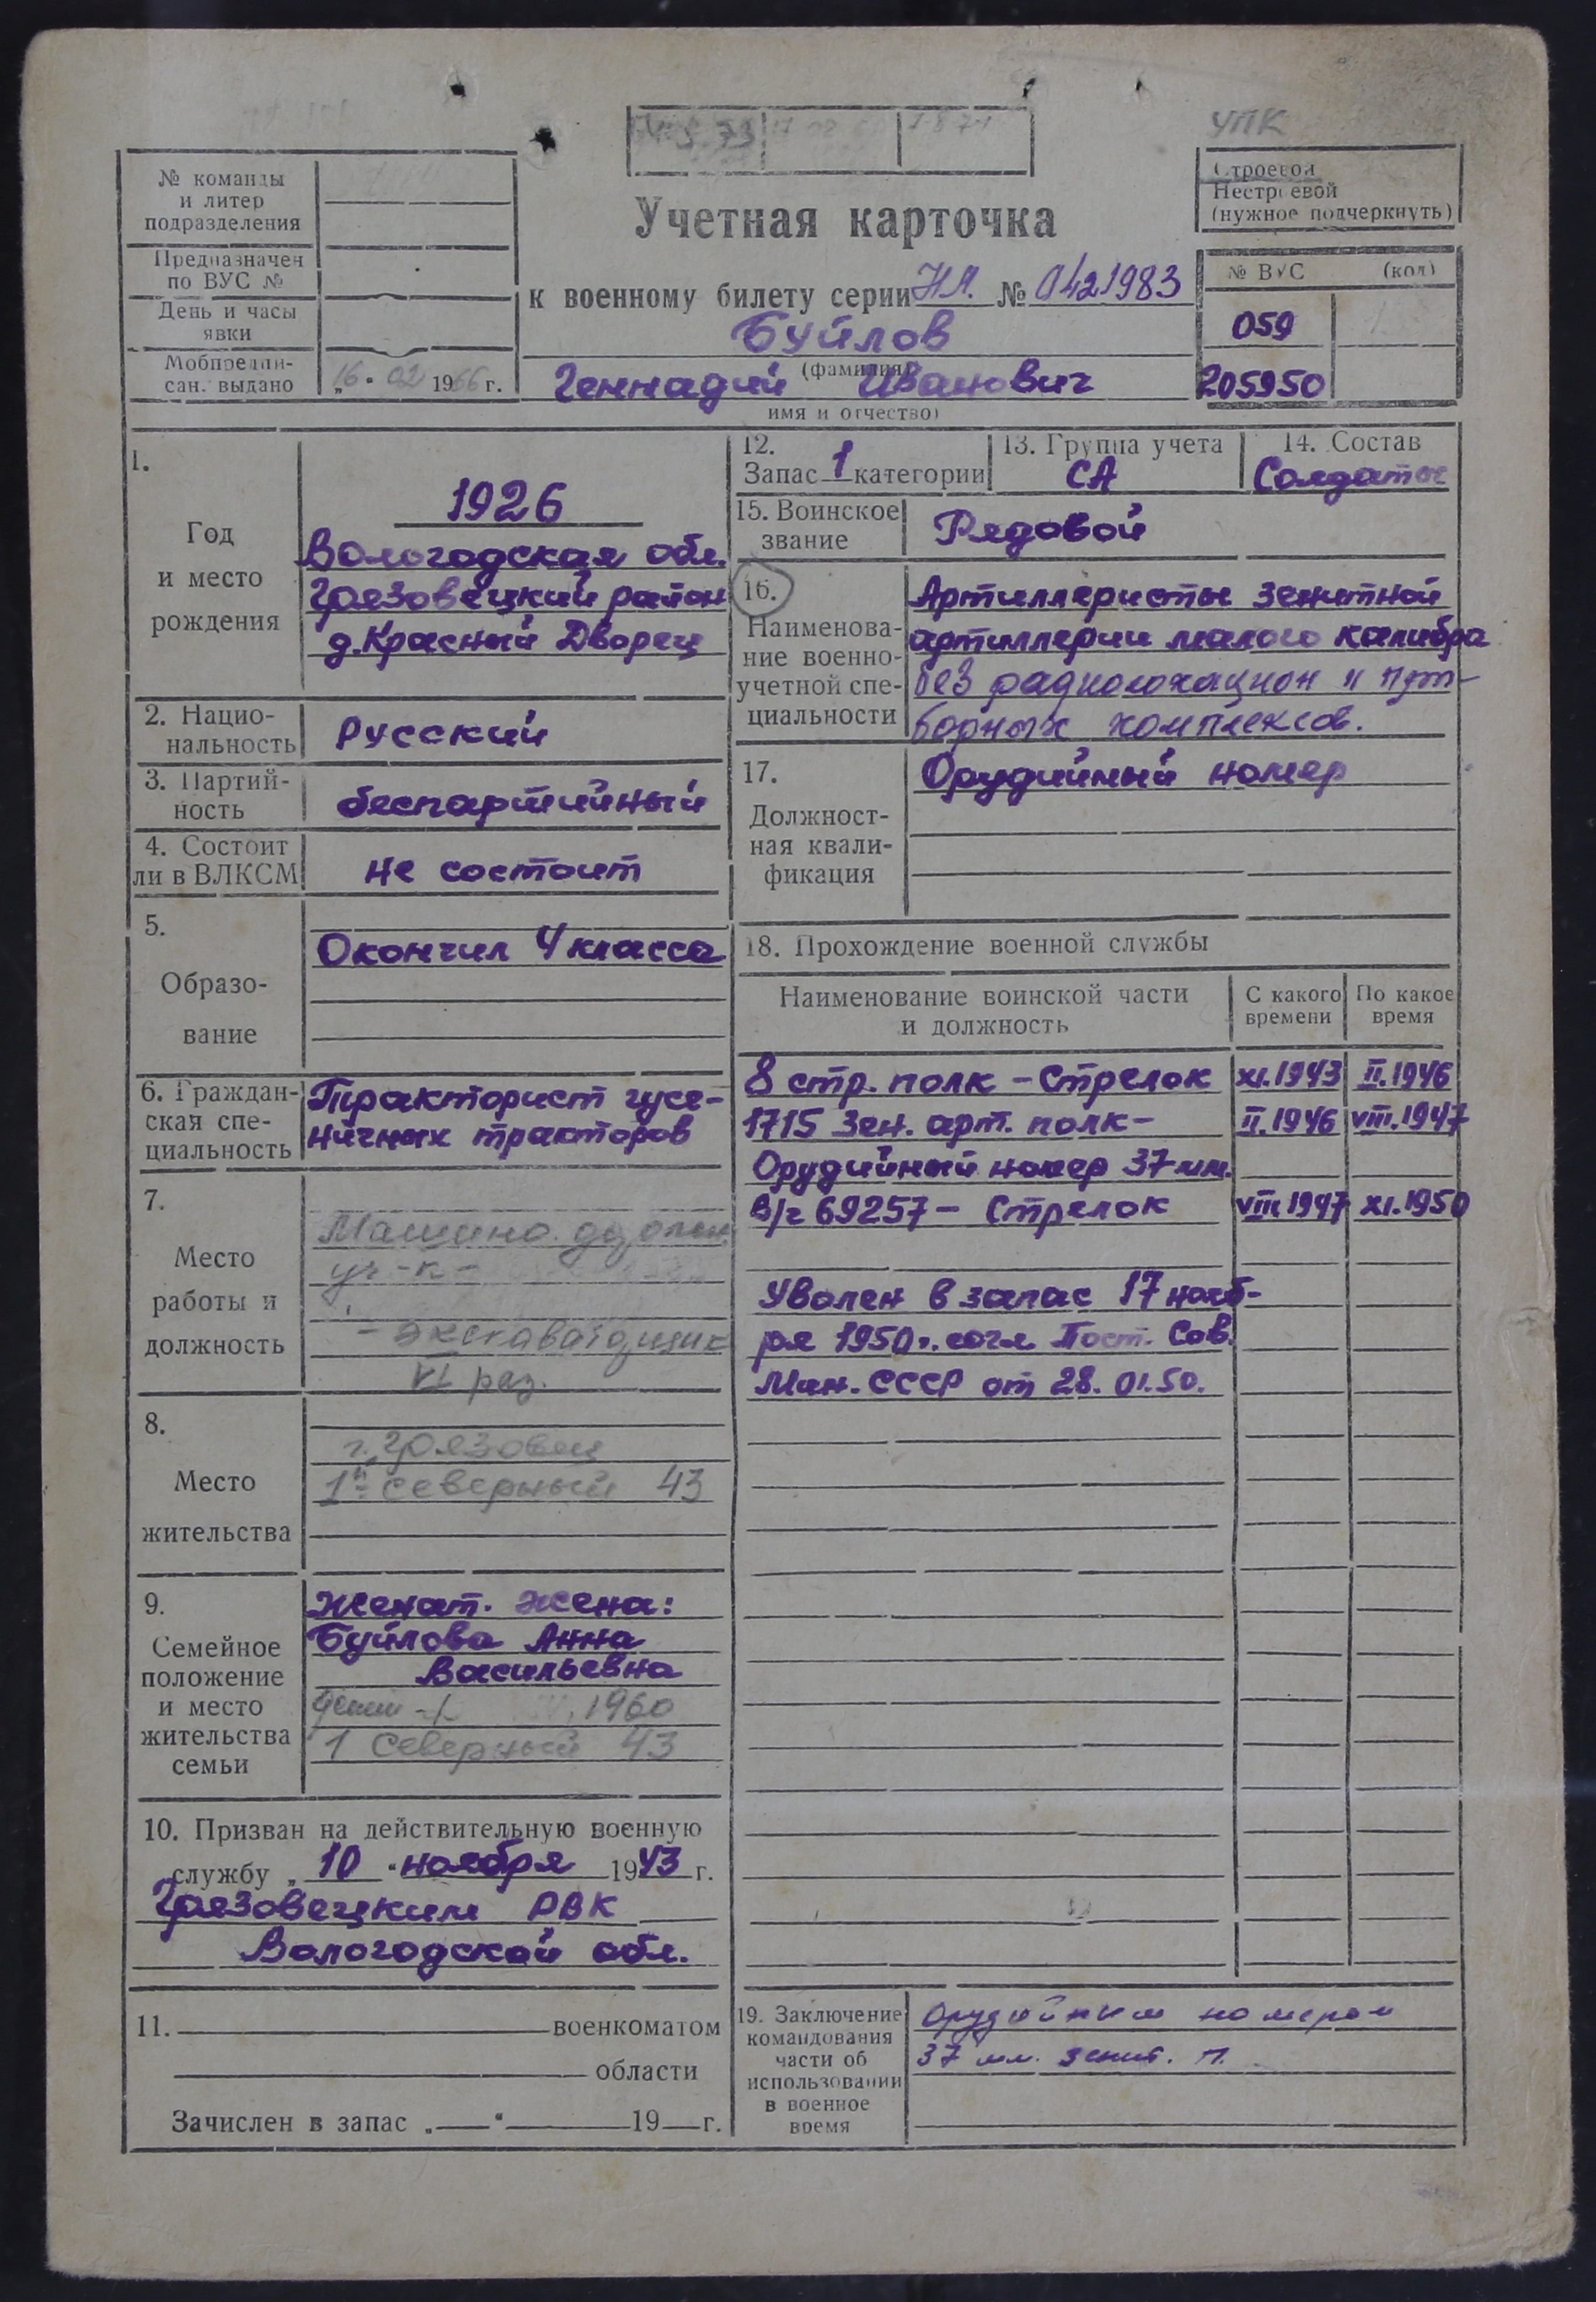 УПК
№ команды
и литер
подразделения
Предназначен
по ВУС №
День и часы
явки
Мобпредпи-
сан. выдано
„16“ 02 1966 г.
Учетная карточка
к военному билету серии НЛ. № 0421983
Буйлов
(фамилия)
Геннадий Иванович
имя и отчество)
Строевой
Нестроевой
(нужное подчеркнуть)
№ ВУС (код)
059
205950
1.
Год
и место
рождения
1926
Вологодская обл.
Грязовецкий район
д.Красный Дворец
2. Нацио-
нальность
Русский
3. Партий-
ность
беспартийный
4. Состоит
ли в ВЛКСМ
не состоит
5.
Образо-
вание
Окончил 4 класса
6. Граждан-
ская спе-
циальность
Тракторист гусе-
ничных тракторов
7.
Место
работы и
должность
Машино.
уч-к-
- экскаваторщик
VI раз.
8.
Место
жительства
г. Грязовец
1й Северный 43
9.
Семейное
положение
и место
жительства
семьи
Женат. жена:
Буйлова Анна
Васильевна
1960
1 Северный 43
10. Призван на действительную военную
службу „10“ ноября 1943 г.
Грязовецким РВК
Вологодской обл.
11. военкоматом
области
Зачислен в запас „ “ 19 г.
12.
Запас 1 категории
13. Группа учета
СА
14. Состав
Солдаты
15. Воинское
звание
Рядовой
16.
Наименова-
ние военно-
учетной спе-
циальности
Артиллеристы зенитной
артиллерии малого калибра
без радиолокацион и
борных комплексов.
17.
Должност-
ная квали-
фикация
Орудийный номер
18. Прохождение военной службы
Наименование воинской части
и должность
С какого
времени
По какое
время
8 стр. полк - Стрелок XI.1943 II.1946
1715 Зен. арт. полк- II.1946 VIII.1947
Орудийный номер 37 мм.
В/ч 69257 - Стрелок VIII.1947 XI.1950
Уволен в запас 17 нояб-
ря 1950г. согл Пост. Сов.
Мин. СССР от 28.01.50.
19. Заключение
командования
части об
использовании
в военное
время
Орудийным номером
37 мм. зенит. п.